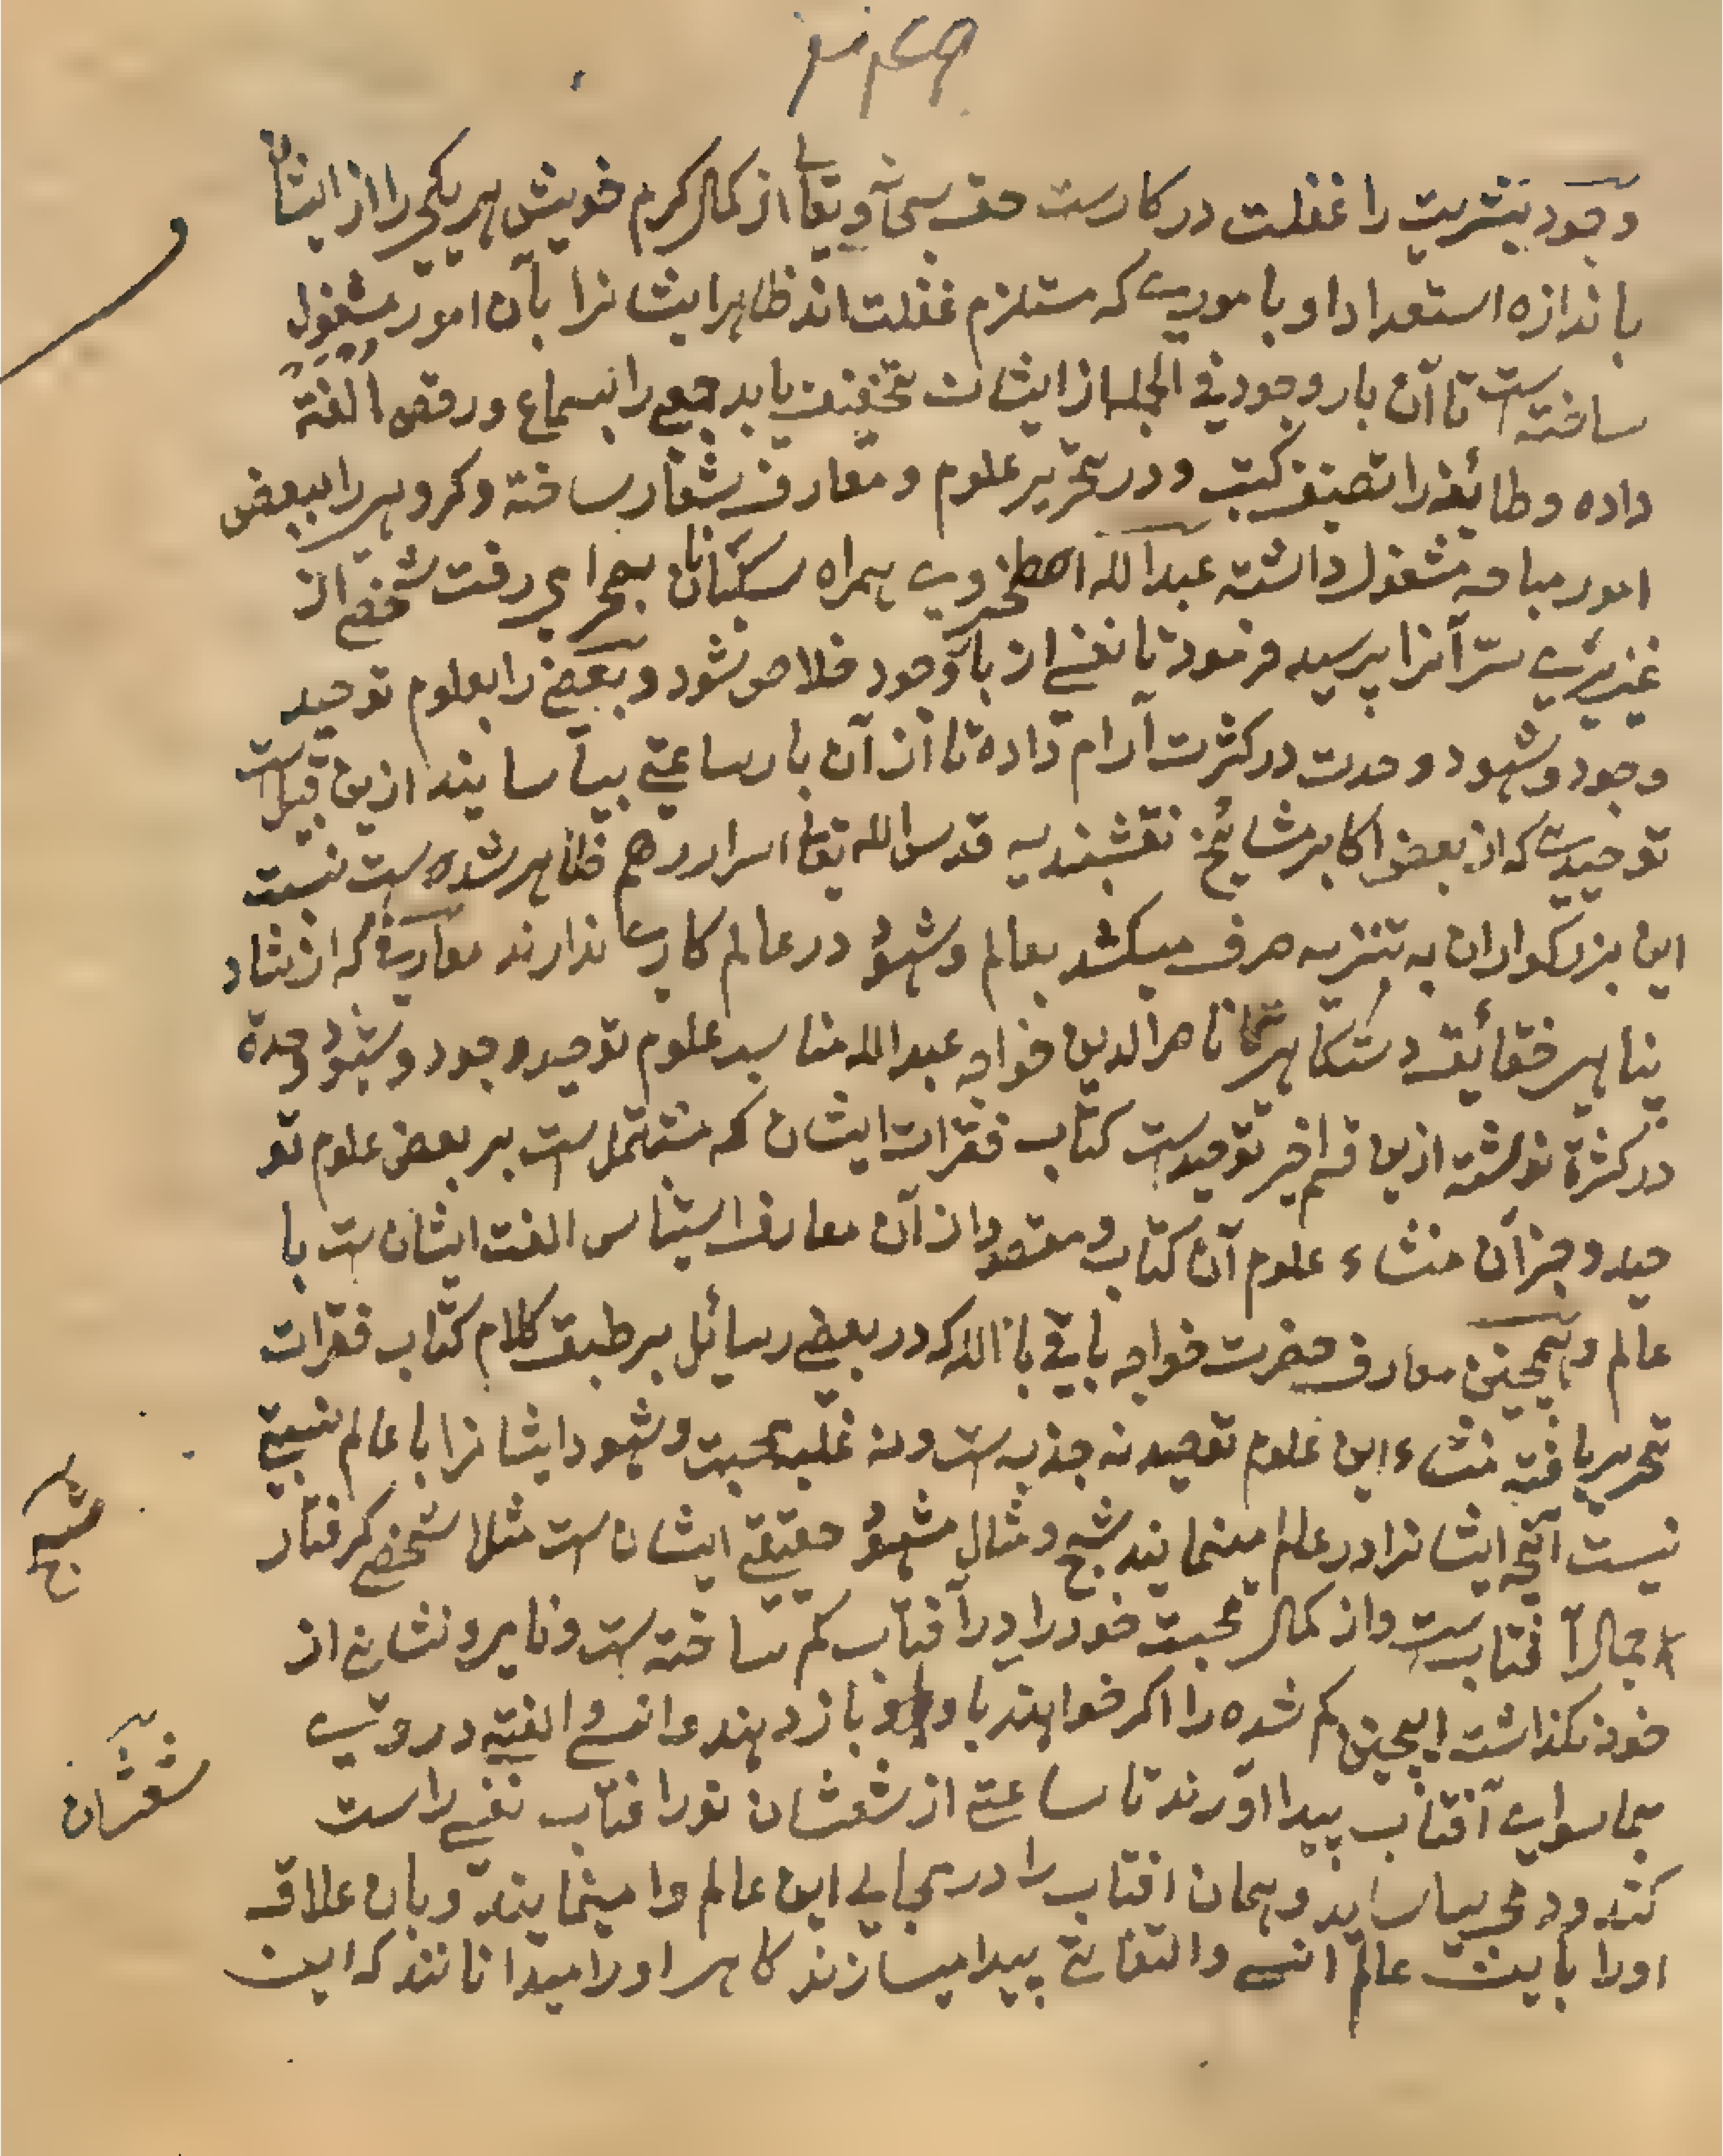 وجود بشریت را غفلت در کارست حق سبحانه و تعالی از کمال کرم خویش هر یکی را از ایشان
باندازه استعداد او بامورے که مستلزم غفلت اند ظاهر ایشانرا بآن امور مشغول
ساخته است تا آن بار وجود فی الجمله از ایشان تخفیف یابد جمعی را بسماع و رقص الفته
داده و طائفه را تصنیف کتب و در تحریر علوم و معارف شعار ساخته و کروہی را ببعض
امور مباحه مشغول داشته عبدالله اصطخروے همراه سکبانان بصحرا می رفت شخصے از
عزیزے سرّ آنرا پرسید فرمود تا نفسے از بار وجود خلاص شود و بعضے را بعلوم توحید
وجود و شهود وحدت در کثرت آرام داده تا از آن بار ساعتے بیاسایند ازین قبیل ست
توحیدے که از بعضے اکابر مشائخ نقشبندیه قدس الله تعالی اسرارهم ظاهر شده ست نسبت
این بزرکواران به تنزیه صرف میکشد بعالم و شهود در عالم کارے ندارند معارفے که ارشاد
پناهی حقائق دستکاهی ناصرالدین خواجه عبدالله مناسب علوم توحید وجود و شهود وحدة
در کثرة نوشته ازین قسم اخیر توحیدست کتاب فقرات ایشان که مشتمل ست بر بعض علوم تو
حید و جز آن منشاء علوم آن کتاب و مقصود از آن معارف استیناس الفت ایشان ست با
عالم و همچنین معارف حضرت خواجه باقی بالله که در بعضے رسائل بر طبق کلام کتاب فقرات
تحریر یافته منشاء این علوم توحید نه جذبه ست و نه غلبه محبت و شهود ایشانرا با عالم نسبتے
نیست آنچه ایشانرا در عالم مینمایند شبح و مثال مشهود حقیقے ایشان ست مثلا شخصے کرفتار
جمال آفتاب ست و از کمال محبت خود را در آفتاب کم ساخته ست و نامے و نشانے از
خود نکذاشته اینچنین کم شده را اکر خواهند باو باز دهند و انسے و الفتے در وے
بماسواے آفتاب پیدا آورند تا ساعتے از شعشان نور افتاب نفسے راست
کند و دمے بیاساید و همان افتاب را در مجالے این عالم وا مینمایند و بآن علاقه
او را باین عالم انسے و التفاتے پیدا میسازند کاهی او را میدانانند که این
شبح
شعشان